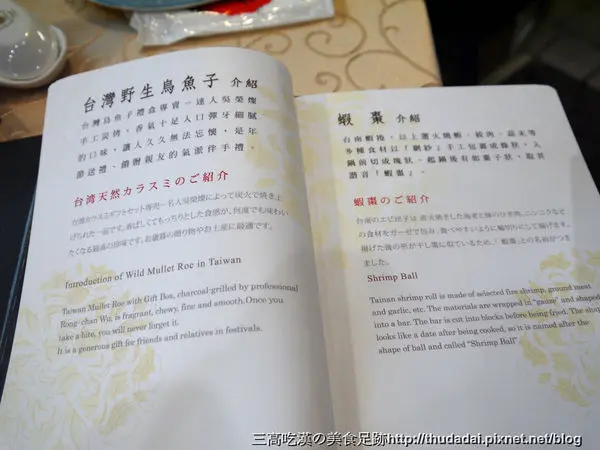 台灣野生烏魚子 介紹
台灣烏魚子禮盒專賣一達人吳榮燦
手工炭烤，香氣十足入口彈牙細膩
的口味，讓人久久無法忘懷，是年
節送禮、餽贈親友的氣派伴手禮。
台湾天然カラスミのご紹介
台湾カラスミギフトセット専売一名人吳榮燦によって炭火で焼き上
げられた一品です。香ばしくてもっちりとした食感が、何度でも味わい
たくなる最高の珍味です。お歳暮の贈り物やお土産に最適です。
Introduction of Wild Mullet Roe in Taiwan
Taiwan Mullet Roe with Gift Box, charcoal-grilled by professional
Rong- chan Wu, is fragrant, chewy, fine and smooth. Once you
take a bite, you will never forget it.
It is a generous gift for friends and relatives in festivals.
蝦棗 介紹
台南蝦捲，以上選火燒蝦、絞肉、蒜末等
多種食材以「網紗」手工包裹成條狀，入
鍋前切成塊狀，起鍋後有如棗子狀，取其
諧音「蝦棗」。
蝦棗のご紹介
台南のエビ団子は 直火焼きした海老と豚のひき肉、ニンニクなど
の食材をガーゼで包み、食べやすいように輪切りにして揚げます。
揚げた後の形が干し棗に似ているため、「蝦棗」の名前がつ
きました。
Shrimp Ball
Tainan shrimp roll is made of selected fire shrimp, ground meat
and garlic, etc. The materials are wrapped in "gauze" and shaped
into a bar. The bar is cut into blocks before being fried. The shape
looks like a date after being cooked, so it is named after the
shape of ball and called "Shrimp Ball"
三高吃漢の美食足跡http://thudadai.pixnet.net/blog